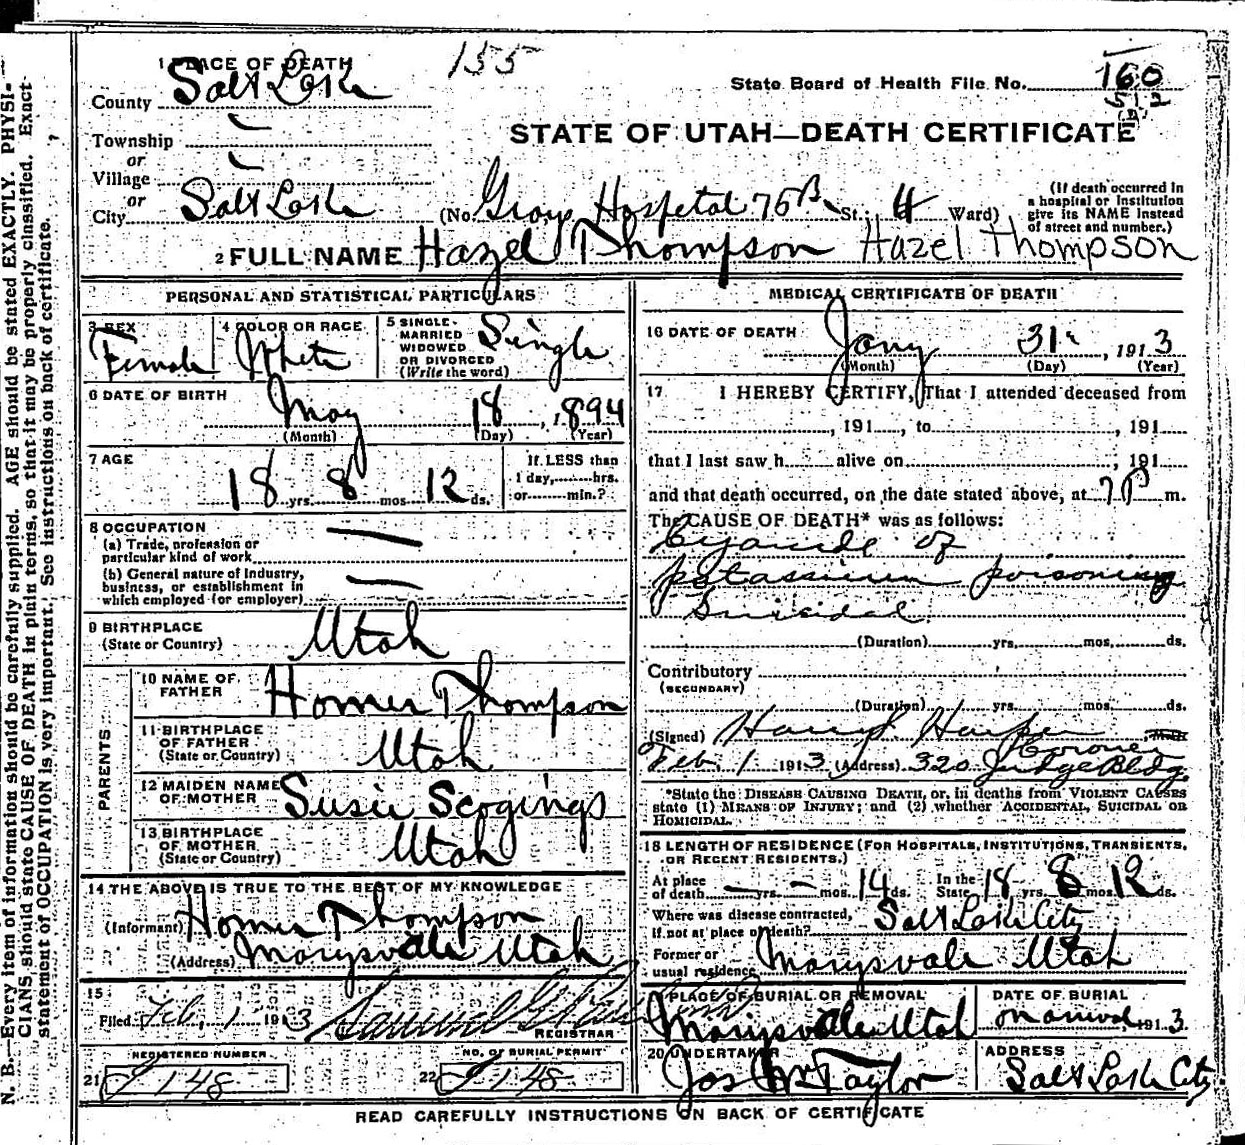 155
1 PLACE OF DEATH
County Salt Lake
State Board of Health File No. 160
512
Township
or
Village
or
City Salt Lake
STATE OF UTAH—DEATH CERTIFICATE
(No. Hospital St.; 4 Ward)
(If death occurred in a hospital or institution give its NAME instead of street and number.)
2 FULL NAME Hazel Thompson Hazel Thompson
PERSONAL AND STATISTICAL PARTICULARS
3 SEX Female
4 COLOR OR RACE White
5 SINGLE, MARRIED WIDOWED OR DIVORCED (Write the word) Single
6 DATE OF BIRTH May 18, 1894
(Month) (Day) (Year)
7 AGE 18 yrs. 8 mos. 12 ds.
If LESS than 1 day, hrs. or min.?
8 OCCUPATION
(a) Trade, profession or particular kind of work
(b) General nature of Industry, business, or establishment in which employed (or employer)
9 BIRTHPLACE (State or Country) Utah
PARENTS
10 NAME OF FATHER Homer Thompson
11 BIRTHPLACE OF FATHER (State or Country) Utah
12 MAIDEN NAME OF MOTHER Susie Scogings
13 BIRTHPLACE OF MOTHER (State or Country) Utah
14 THE ABOVE IS TRUE TO THE BEST OF MY KNOWLEDGE
(Informant) Homer Thompson
(Address) Marysvale Utah
15
Filed Feb, 1 1913
REGISTRAR
REGISTERED NUMBER
21 J 148
NO. OF BURIAL PERMIT
22 J 148
MEDICAL CERTIFICATE OF DEATH
16 DATE OF DEATH Jany 31, 1913
(Month) (Day) (Year)
17 I HEREBY CERTIFY, That I attended deceased from
, 191 , to , 191
that I last saw h alive on , 191
and that death occurred, on the date stated above, at 7 P m.
The CAUSE OF DEATH* was as follows:
Cyanide of
potassium poisoning
Suicidal
(Duration) yrs. mos. ds.
Contributory
(SECONDARY)
(Duration) yrs. mos. ds.
(Signed) Harry Harper
Coroner
Feb. 1 1913 (Address) 320 Judge Bldg.
*State the DISEASE CAUSING DEATH, or, in deaths from VIOLENT CAUSES
state (1) MEANS OF INJURY; and (2) whether ACCIDENTAL, SUICIDAL OR
HOMICIDAL.
18 LENGTH OF RESIDENCE (FOR HOSPITALS, INSTITUTIONS, TRANSIENTS,
OR RECENT RESIDENTS.)
At place of death yrs. mos. 14 ds. In the State 18 yrs. 8 mos. 12 ds.
Where was disease contracted, If not at place of death? Salt Lake City
Former or usual residence Marysvale Utah
19 PLACE OF BURIAL OR REMOVAL Marysvale Utah
DATE OF BURIAL on arrival 1913
20 UNDERTAKER Jos Wm Taylor
ADDRESS Salt Lake City
READ CAREFULLY INSTRUCTIONS ON BACK OF CERTIFICATE
N. B.—Every item of information should be carefully supplied. AGE should be stated EXACTLY. PHYSI-
CIANS should state CAUSE OF DEATH in plain terms, so that it may be properly classified. Exact
statement of OCCUPATION is very important. See instructions on back of certificate.